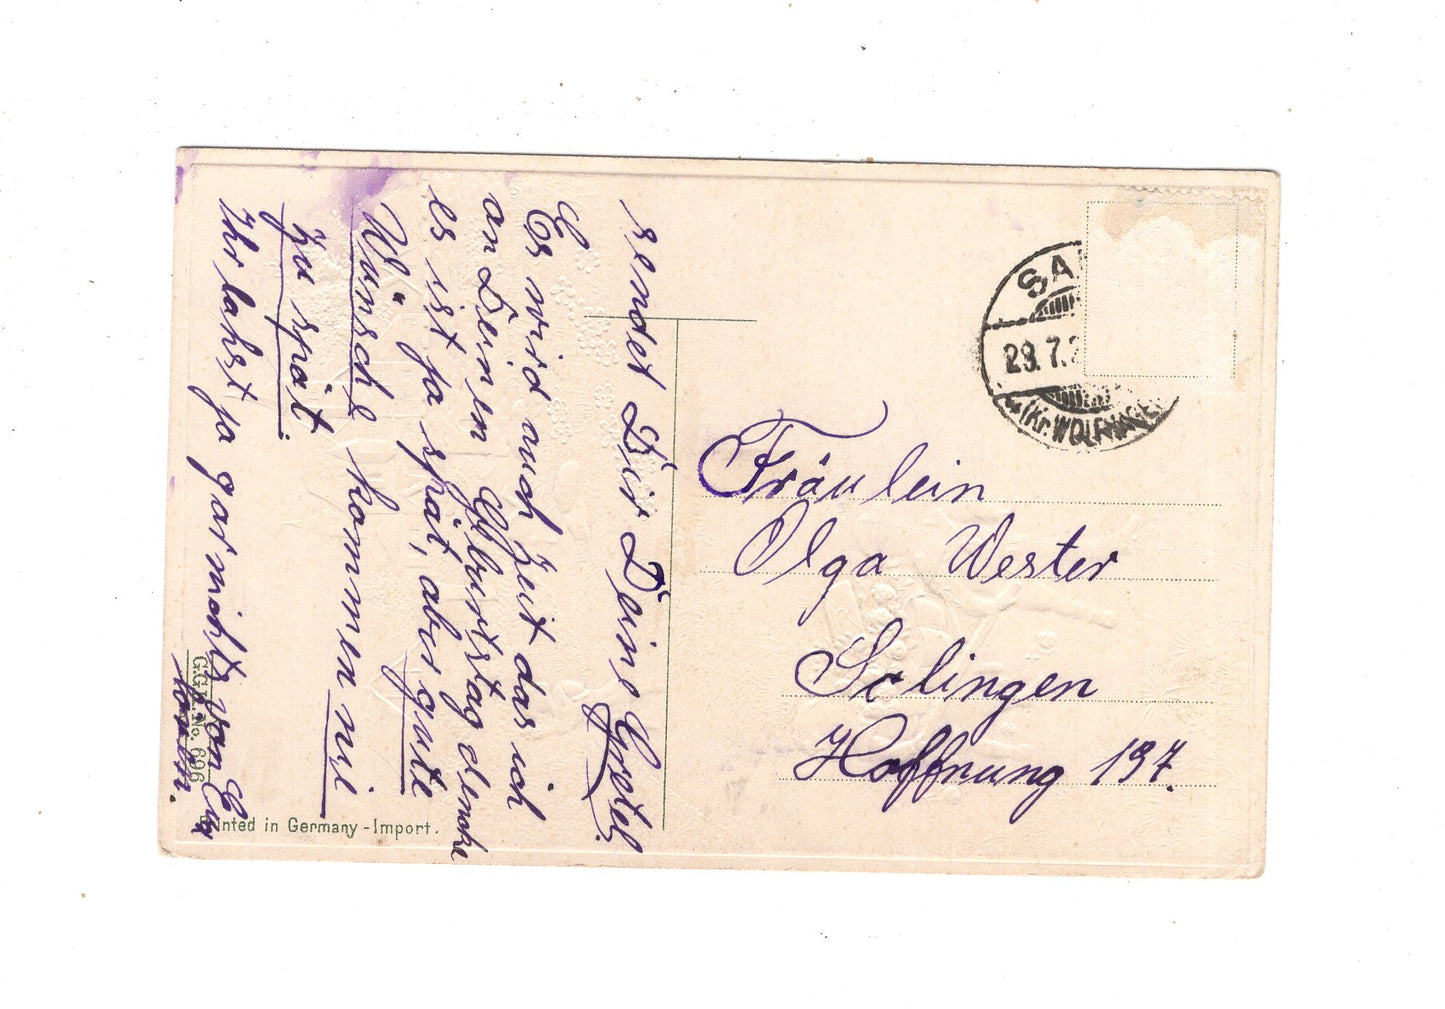 sendet Dir Deine Gretel.
Es wird auch Zeit das ich
an Deinen Geburtstag denke
es ist ja spät, aber gute
Wünsche kommen nie
zu spät.
Ihr lahst ja garnichts von Euch
hören.
G.G.K. No. 696
Printed in Germany - Import.
SA
29.7.2
(Kr. WOLFHAGEN
Fräulein
Olga Wester
Solingen
Hoffnung 197.